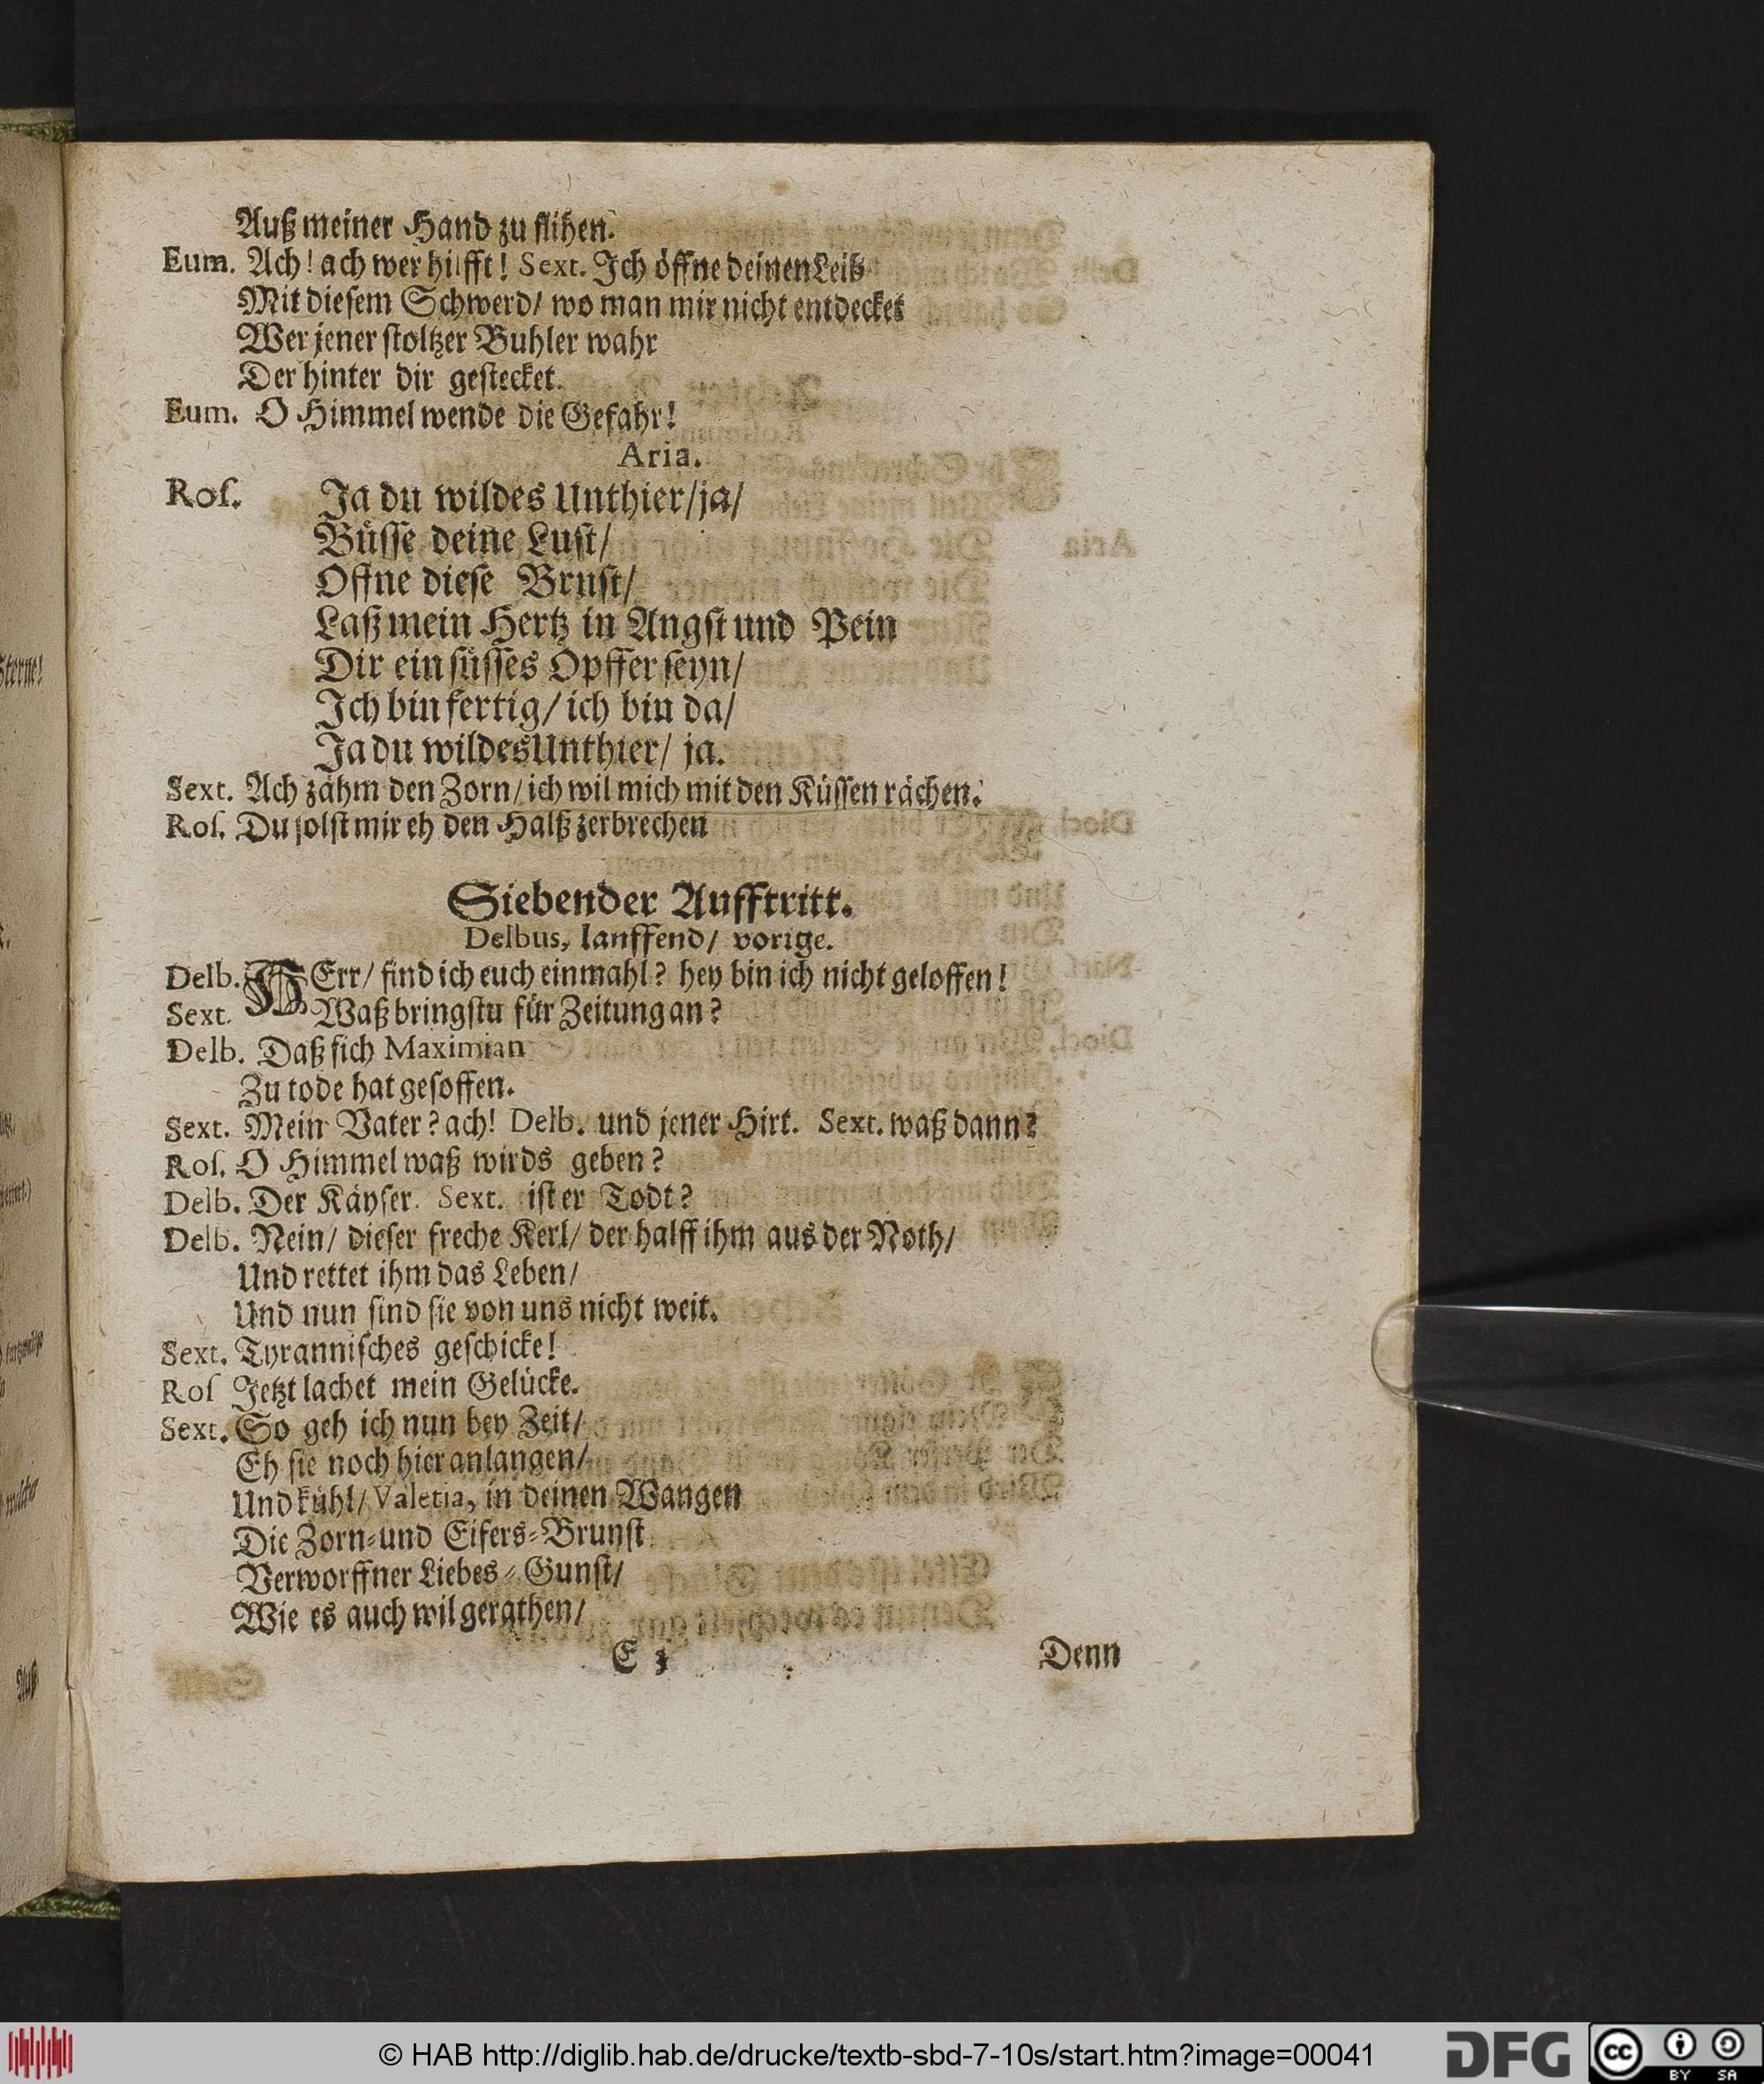 Auß meiner Hand zu flihen.
Eum. Ach! ach wer hilfft! Sext. Ich öffne deinen Leib
Mit diesem Schwerd/ wo man mir nicht entdecket
Wer jener stoltzer Buhler wahr
Der hinter dir gestecket.
Eum. O Himmel wende die Gefahr!
Aria.
Ros. Ja du wildes Unthier/ja/
Büsse deine Lust/
Offne diese Brust/
Laß mein Hertz in Angst und Pein
Dir ein süsses Opffer seyn/
Ich bin fertig/ ich bin da/
Ja du wildes Unthier/ ja.
Sext. Ach zähm den Zorn/ ich wil mich mit den Küssen rächen.
Ros. Du solst mir eh den Halß zerbrechen
Siebender Aufftritt.
Delbus, lauffend/ vorige.
Delb. HErr/ find ich euch einmahl? hey bin ich nicht geloffen!
Sext. Waß bringstu für Zeitung an?
Delb. Daß sich Maximian
Zu tode hat gesoffen.
Sext. Mein Vater? ach! Delb. und jener Hirt. Sext. waß dann?
Ros. O Himmel waß wirds geben?
Delb. Der Käyser. Sext. ist er Todt?
Delb. Nein/ dieser freche Kerl/ der halff ihm aus der Noth/
Und rettet ihm das Leben/
Und nun sind sie von uns nicht weit.
Sext. Tyrannisches geschicke!
Ros Jetzt lachet mein Gelücke.
Sext. So geh ich nun bey Zeit/
Eh sie noch hier anlangen/
Und kühl/ Valeria, in deinen Wangen
Die Zorn-und Eifers-Brunst
Verworffner Liebes-Gunst/
Wie es auch wil gerathen/
E 3 Denn
© HAB http://diglib.hab.de/drucke/textb-sbd-7-10s/start.htm?image=00041
DFG
cc BY SA